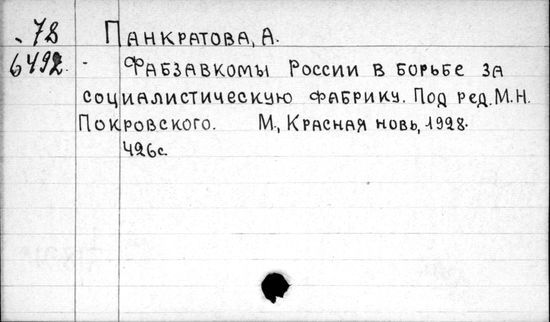 78 Панкратова, А.
6492. - Фабзавкомы России в борьбе за
социалистическую фабрику. Под ред. М.Н.
Покровского. М., Красная новь, 1928.
426с.